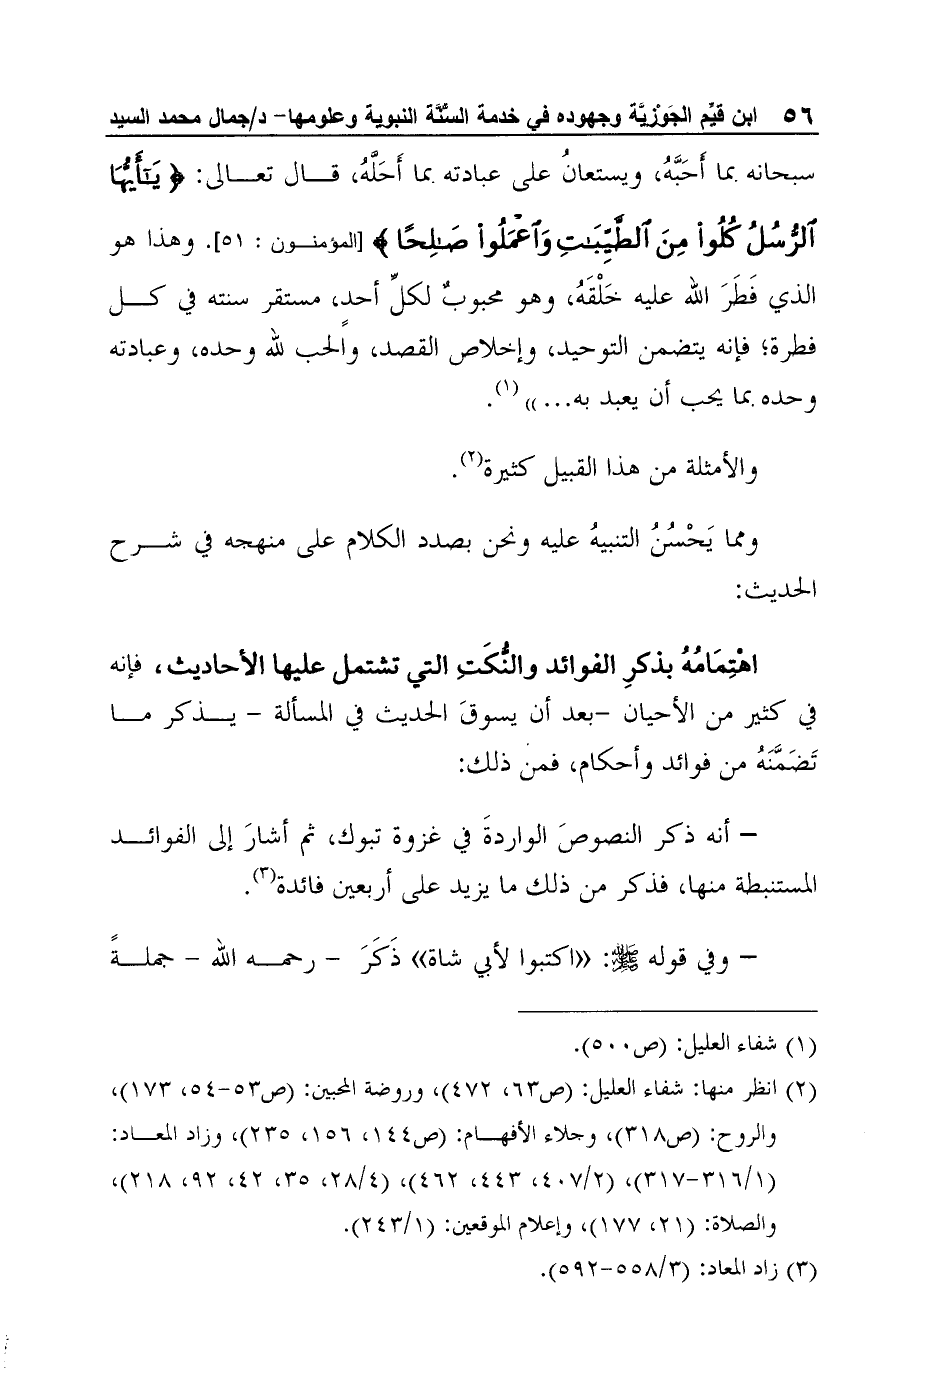 ٥٦ ابن قيِّم الجَوْزيَّة وجهوده في خدمة السُّنَّة النبوية وعلومها- د/جمال محمد السيد
سبحانه بما أَحَبَّهُ، ويستعانُ على عبادته بما أَحَلَّهُ، قال تعالى: ﴿ يَـٰٓأَيُّهَا
ٱلرُّسُلُ كُلُوا۟ مِنَ ٱلطَّيِّبَـٰتِ وَٱعْمَلُوا۟ صَـٰلِحًا ﴾ [المؤمنون : ٥١]. وهذا هو
الذي فَطَرَ الله عليه خَلْقَهُ، وهو محبوبٌ لكلِّ أحدٍ، مستقر سنته في كل
فطرة؛ فإنه يتضمن التوحيد، وإخلاص القصد، والحب لله وحده، وعبادته
وحده بما يحب أن يعبد به...»(١).
والأمثلة من هذا القبيل كثيرة(٢).
ومما يَحْسُنُ التنبيهُ عليه ونحن بصدد الكلام على منهجه في شرح
الحديث:
اهْتِمَامُهُ بذكرِ الفوائد والنُّكَتِ التي تشتمل عليها الأحاديث، فإنه
في كثير من الأحيان -بعد أن يسوقَ الحديث في المسألة - يذكر ما
تَضَمَّنَهُ من فوائد وأحكام، فمن ذلك:
– أنه ذكر النصوصَ الواردةَ في غزوة تبوك، ثم أشارَ إلى الفوائد
المستنبطة منها، فذكر من ذلك ما يزيد على أربعين فائدة(٣).
– وفي قوله ﷺ: «اكتبوا لأبي شاة» ذَكَرَ - رحمه الله - جملةً
(١) شفاء العليل: (ص٥٠٠).
(٢) انظر منها: شفاء العليل: (ص٦٣، ٤٧٢)، وروضة المحبين: (ص٥٣-٥٤، ١٧٣)،
والروح: (ص٣١٨)، وجلاء الأفهام: (ص١٤٤، ١٥٦، ٢٣٥)، وزاد المعاد:
(٣١٦/١-٣١٧)، (٤٠٧/٢، ٤٤٣، ٤٦٢)، (٢٨/٤، ٣٥، ٤٢، ٩٢، ٢١٨)،
والصلاة: (٢١، ١٧٧)، وإعلام الموقعين: (٢٤٣/١).
(٣) زاد المعاد: (٥٥٨/٣-٥٩٢).